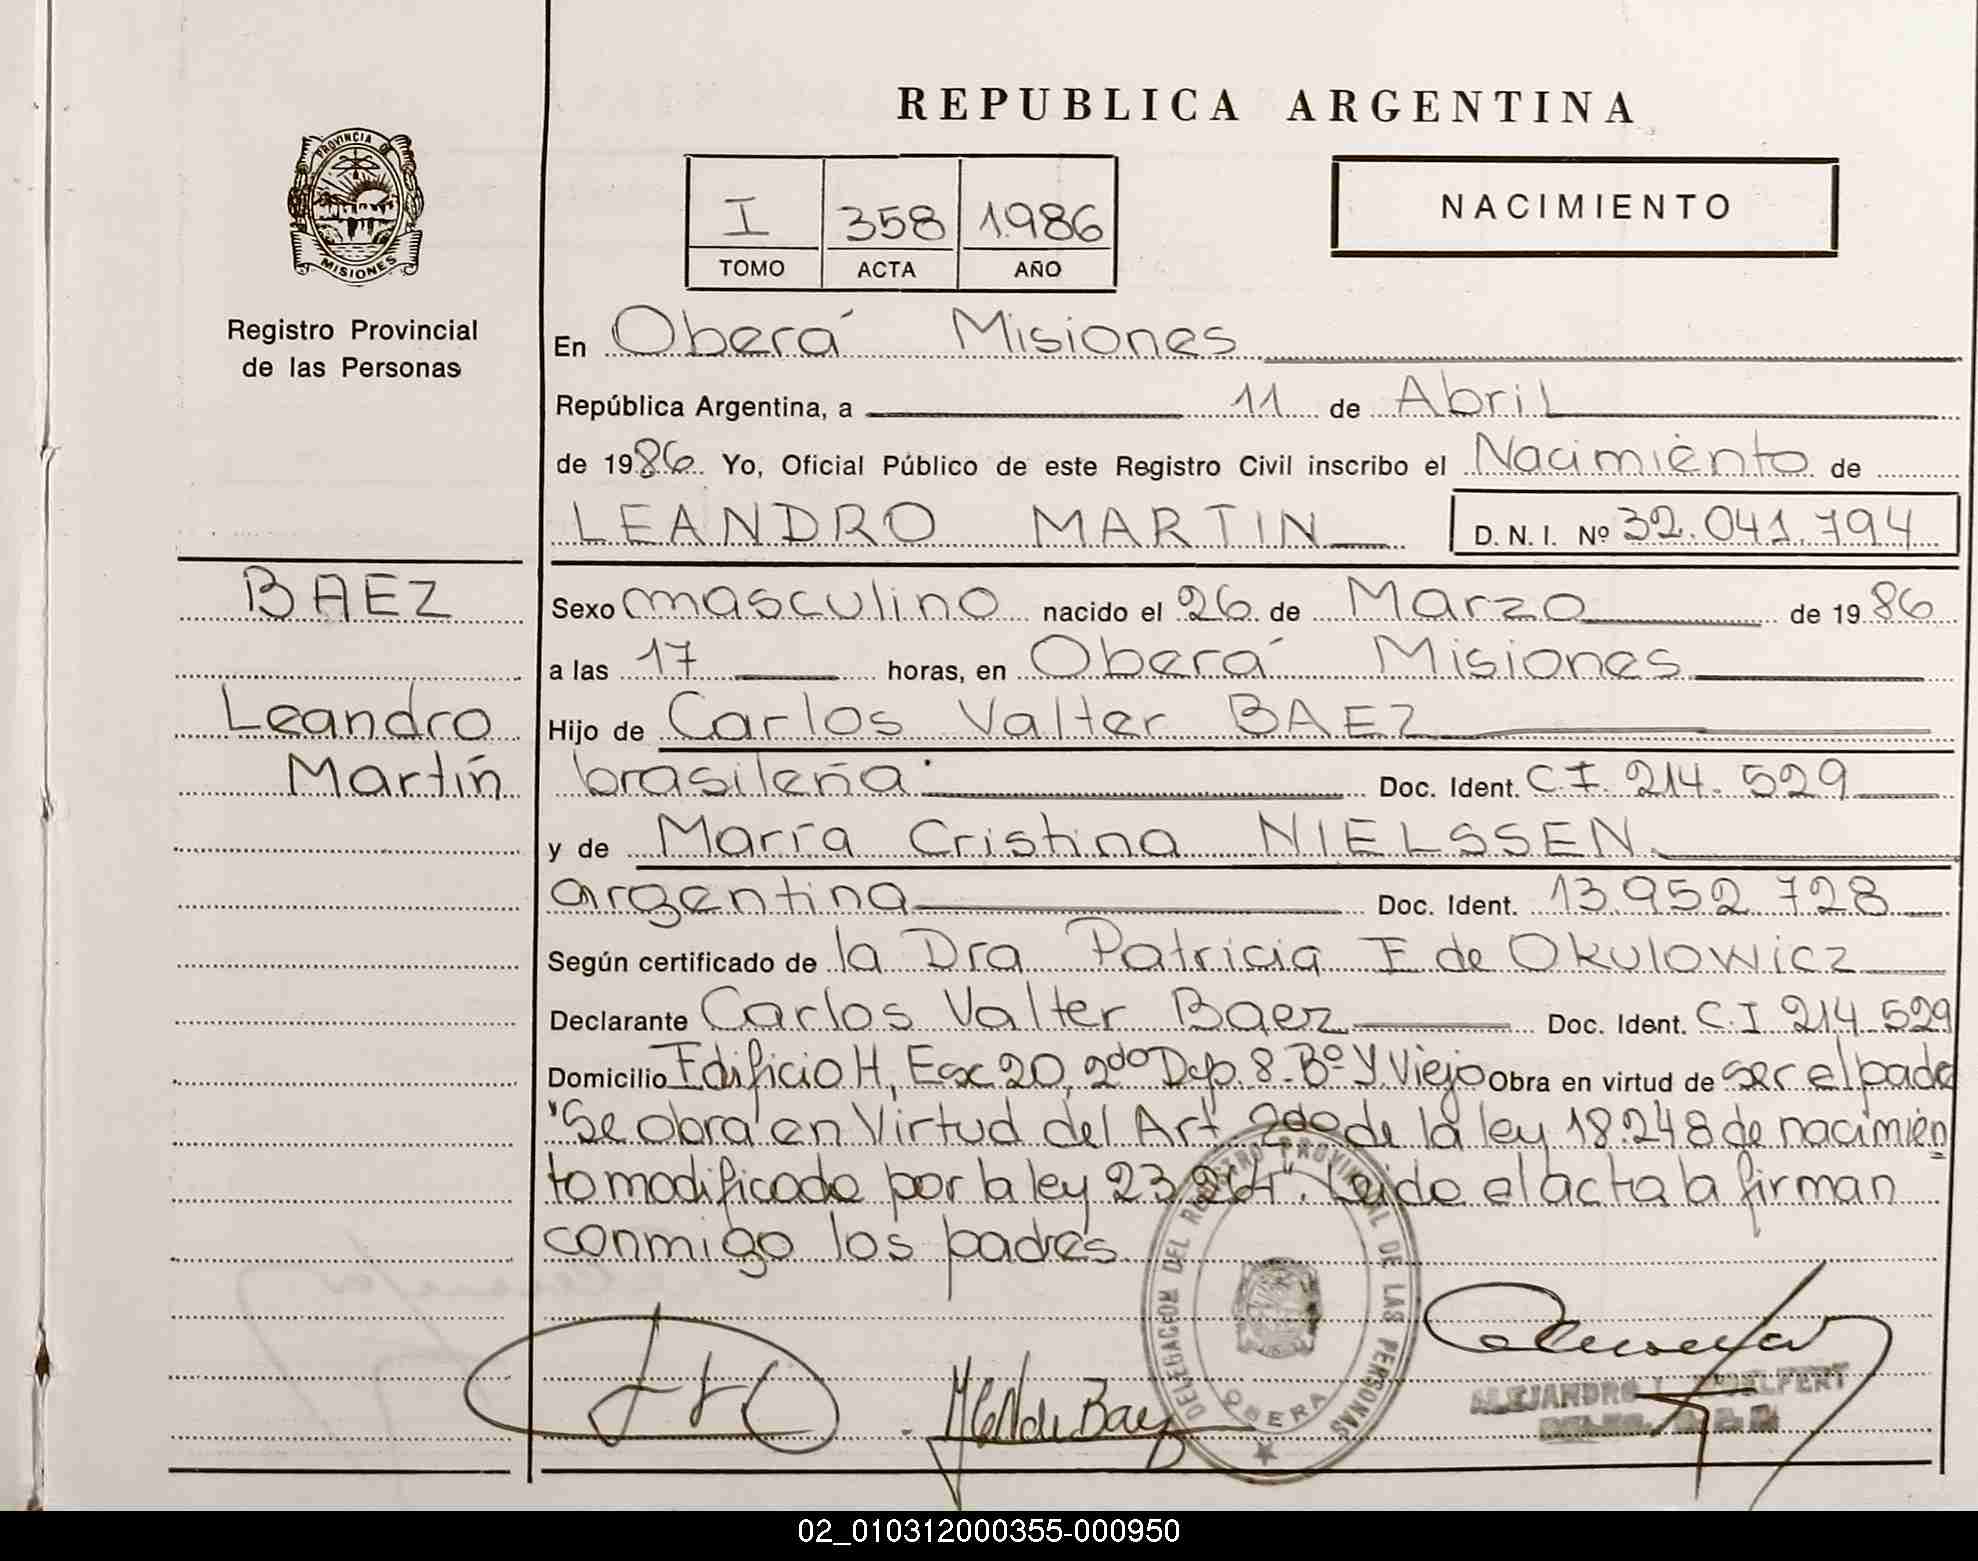 REPUBLICA ARGENTINA
PROVINCIA DE
MISIONES
Registro Provincial
de las Personas
I 358 1986
TOMO ACTA AÑO
NACIMIENTO
En Oberá Misiones
República Argentina, a 11 de Abril
de 1986 Yo, Oficial Público de este Registro Civil inscribo el Nacimiento de
LEANDRO MARTIN D. N. I. Nº 32.041.794
BAEZ
Leandro
Martín
Sexo masculino nacido el 26 de Marzo de 1986
a las 17 horas, en Oberá Misiones
Hijo de Carlos Valter BAEZ
brasileña Doc. Ident. C.I. 214.529
y de María Cristina NIELSSEN
argentina Doc. Ident. 13.952.728
Según certificado de la Dra Patricia F de Okulowicz
Declarante Carlos Valter Baez Doc. Ident. C.I 214.529
Domicilio Edificio H, Esc 20, 2do Dep. 8-Bº Y. Viejo Obra en virtud de ser el padre
"Se obra en Virtud del Art 2do de la ley 18.248 de nacimien
to modificado por la ley 23.264". Leido el acta la firman
conmigo los padres.
DELEGACION DEL REGISTRO PROVINCIAL DE LAS PERSONAS
OBERA
de Baez
ALEJANDRO
02_010312000355-000950